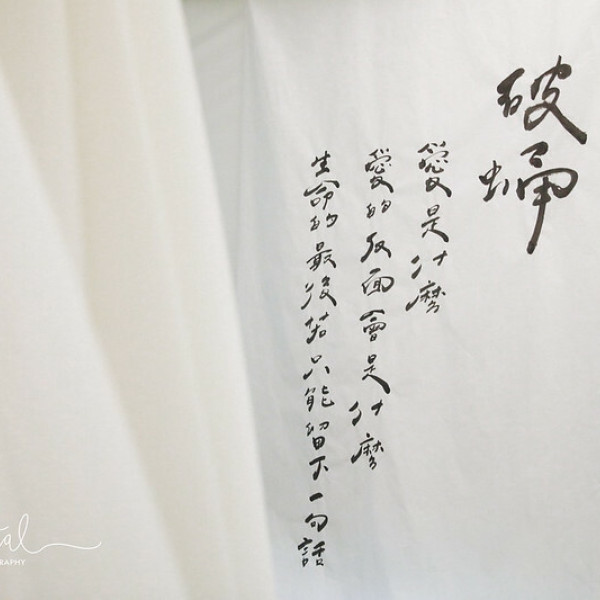 破蛹
愛是什麼
愛的反面會是什麼
生命的最後若只能留下一句話